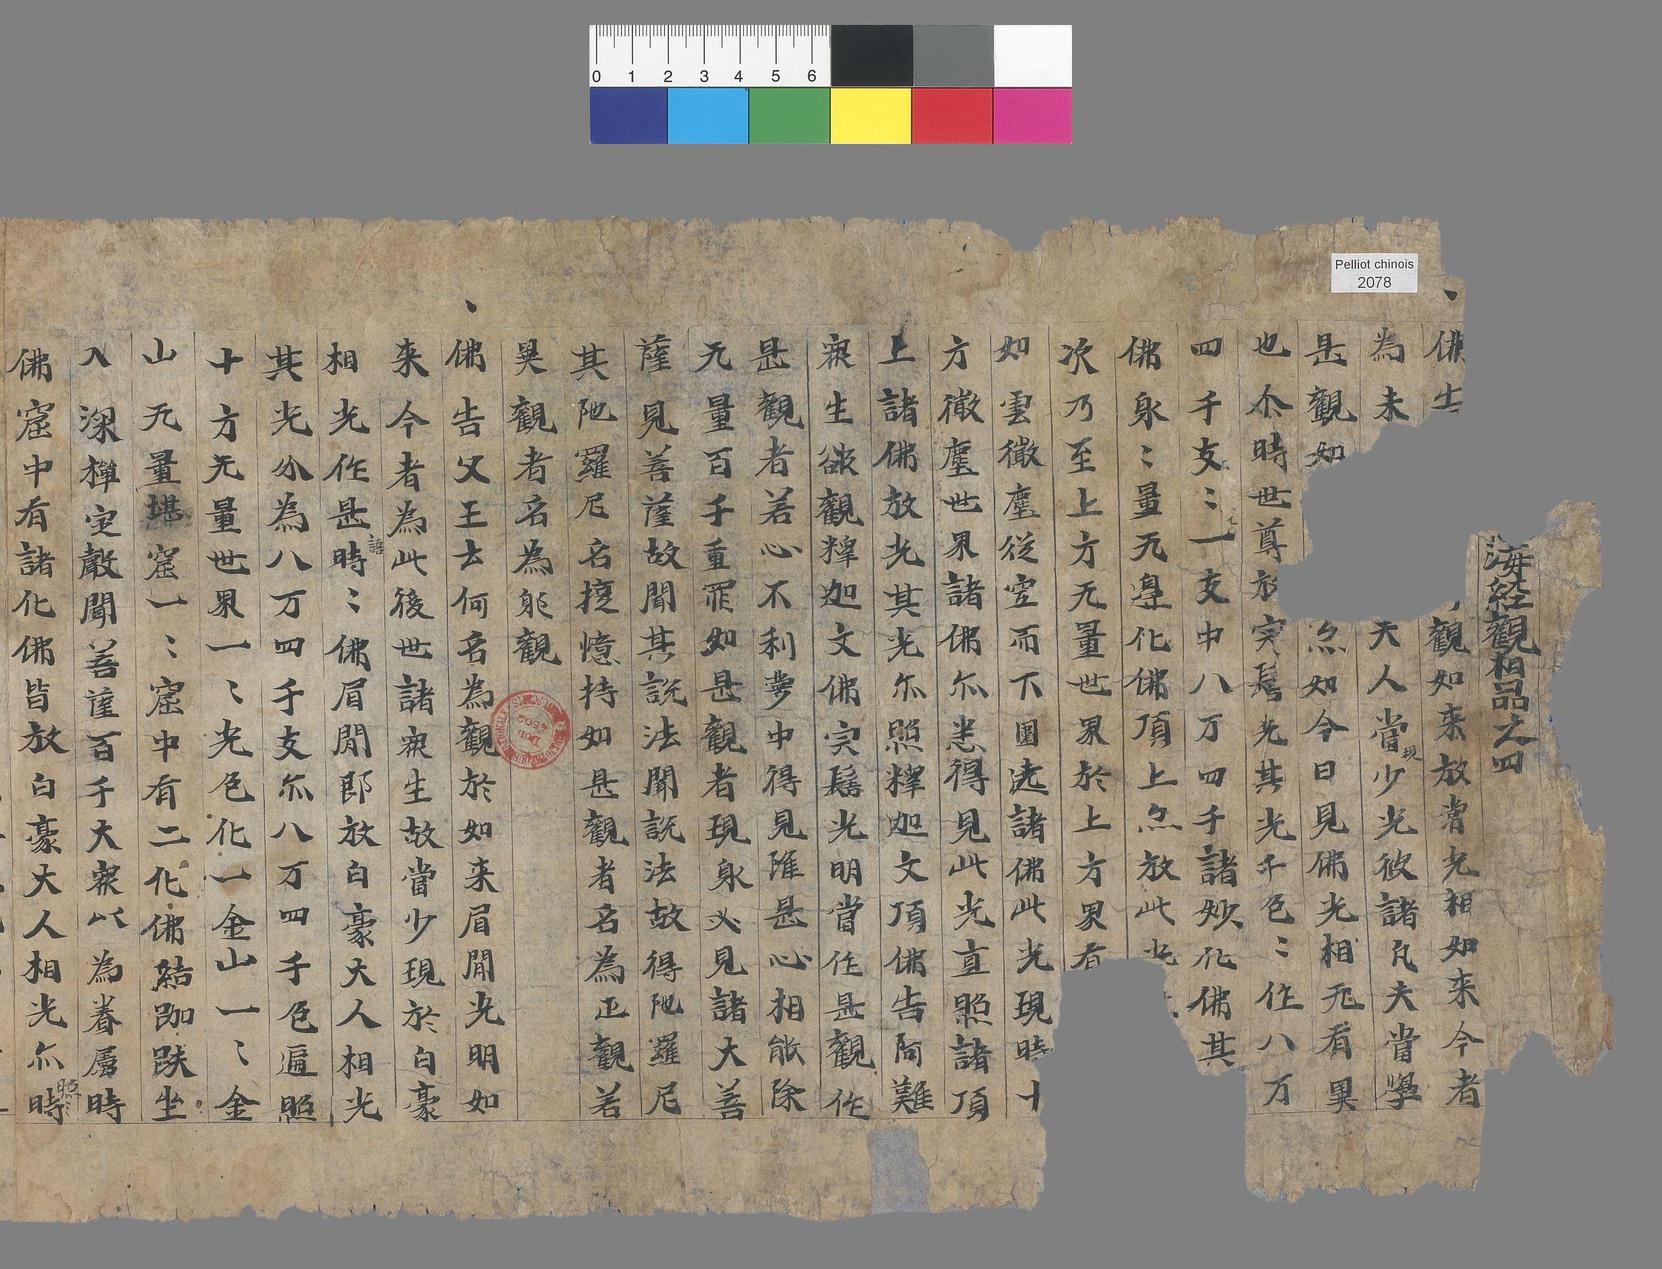 0 1 2 3 4 5 6
Pelliot chinois
2078
海経觀相品之四
佛告觀如来放常光相如来今者
為未夫人當現少光彼諸凡夫當學
是觀如尒如今日見佛光相无有異
也尒時世尊放肉髻光其光千色〻作八万
四千支〻一支中八万四千諸妙化佛其
佛身〻量无邊化佛頂上尒放此光
次乃至上方无量世界於上方界者
如雲微塵從空而下圍遶諸佛此光現時十
方微塵世界諸佛尒悉得見此光直照諸頂
上諸佛放光其光尒照釋迦文頂佛告阿難
衆生欲觀釋迦文佛肉髻光明當作是觀作
是觀者若心不利夢中得見雖是心相能除
无量百千重罪如是觀者現身必見諸大菩
薩見菩薩故聞其説法聞説法故得陁羅尼
其陁羅尼名憶持如是觀者名為正觀若
異觀者名為邪觀
佛告父王云何名為觀於如来眉間光明如
来今者為此後世諸衆生故當少現於白豪
相光作是語時〻佛眉間即放白豪大人相光
其光分為八万四千支尒八万四千色遍照
十方无量世界一〻光色化一金山一〻金
山无量堪窟一〻窟中有二化佛結跏趺坐
入深禪定聲聞菩薩百千大衆以為眷屬時
佛窟中有諸化佛皆放白豪大人相光尒照時